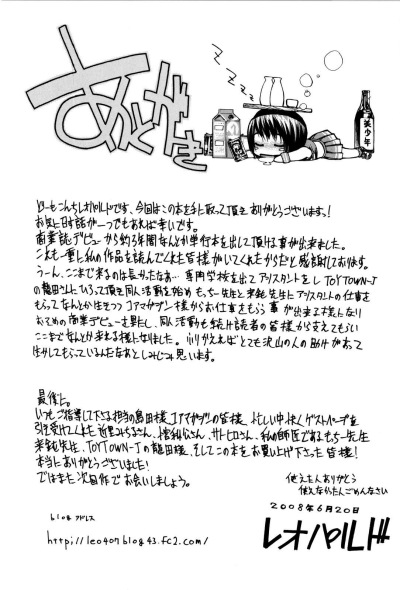 あとがき
zzzz
美少年
どーもこんちレオパルドです、今回はこの本を手に取って頂きありがとうございます!
お気に召す話が一つでもあれば幸いです。
商業誌デビューから約3年間なんとか単行本を出して頂ける事が出来ました。
これも一重に私の作品を読んでくれた皆様がいてくれたからだと感謝しております。
うーん、ここまで来るのは長かったなぁ…専門学校を出てアシスタントをし TOYTOWN-J
の龍田さんにいろって頂き同人活動を始め もっちー先生と来鈍先生にアシスタントの仕事を
もらってなんとか生きつつ コアマガジン様からお仕事をもらう事が出来る様になり
おための商業デビューを果たし、同人活動も続け読者の皆様から支えてもらい
ここまでなんとか来れる様になりました。ふりかえればとても沢山の人の助けがあって
生かしてもらっているんだなぁとしみじみ思います。
最後に。
いつもご指導して下さる担当の島田様、コアマガジンの皆様、忙しい中快くゲストページを
引き受けてくれた 近里みちるさん、サトヒロさん、私の師匠であるもっちー先生
来鈍先生、TOYTOWN-Jの龍田様、そしてこの本をお買い上げ下さった皆様!
本当にありがとうございました!
ではまた次回作でお会いしましょう。
使えたんありがとう
使えなかったんごめんなさい
2008年6月20日
レオパルド
blog アドレス
http://leo407blog43.fc2.com/